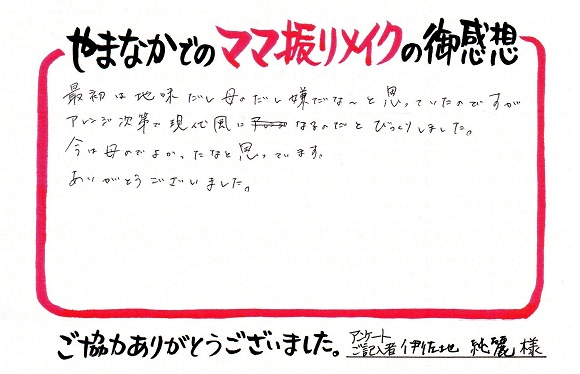 やまなかでのママ振りメイクの御感想
最初は地味だし母のだし嫌だな〜と思っていたのですが
アレンジ次第で現代風になるのだとびっくりしました。
今は母のでよかったなと思っています。
ありがとうございました。
ご協力ありがとうございました。
アンケートご記入者 伊佐地 純麗 様